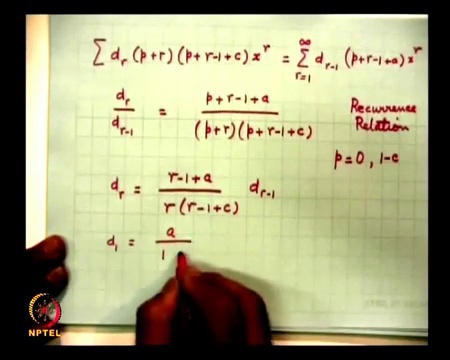 ∑ d_r (p+r) (p+r-1+c) x^r = ∑_{r=1}^{∞} d_{r-1} (p+r-1+a) x^r
d_r / d_{r-1} = (p+r-1+a) / ((p+r)(p+r-1+c))
Recurrence
Relation
p=0, 1-c
d_r = (r-1+a) / (r(r-1+c)) d_{r-1}
d_1 = a / 1
NPTEL